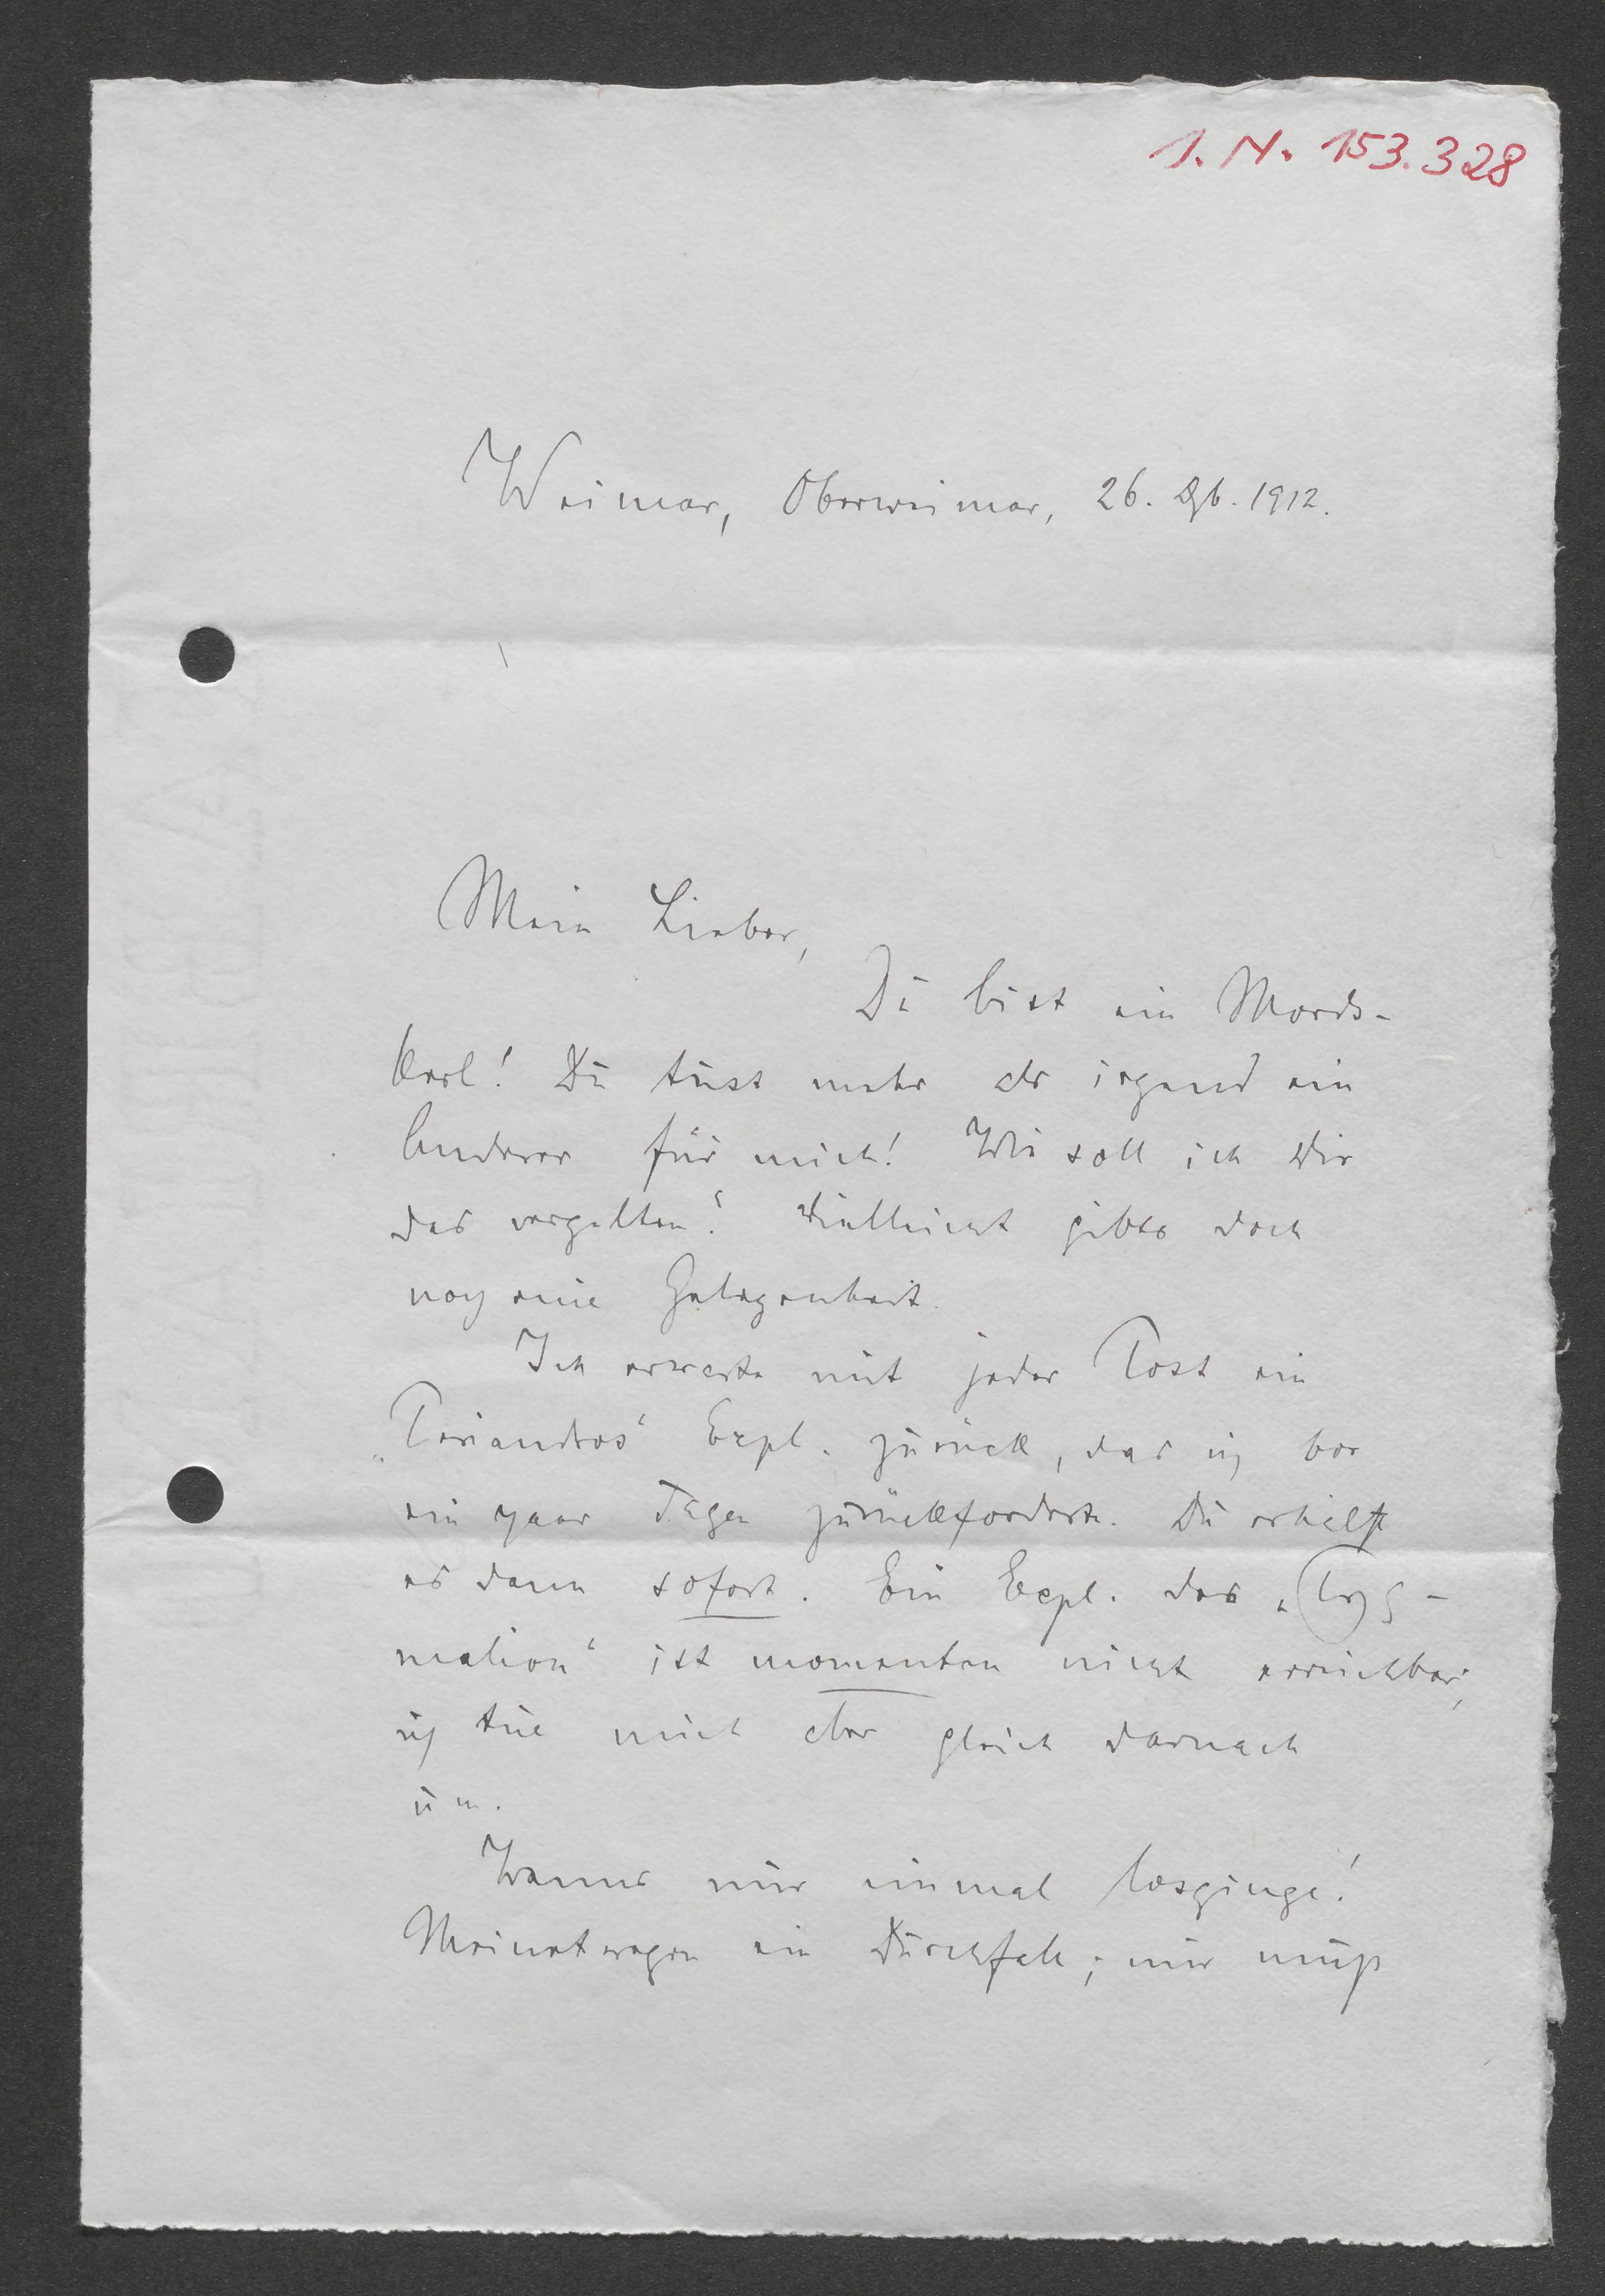 I. N. 153.328
Weimar, Oberweimar, 26. Dzb. 1912.
Mein Lieber,
Du bist ein Mords-
kerl! Du tust mehr als irgend ein
Anderer für mich! Wie soll ich Dir
das vergelten? Vielleicht gibts doch
noch eine Gelegenheit.
Ich erwarte mit jeder Post ein
„Periandros“ Expl. zurück, das ich vor
ein paar Tagen zurückforderte. Du erhälst
es dann sofort. Ein Expl. des „Pyg-
malion“ ist momentan nicht erreichbar;
ich tue mich aber gleich darnach
um.
Wenns nur einmal losginge!
Meinetwegen ein Durchfall; nur muß